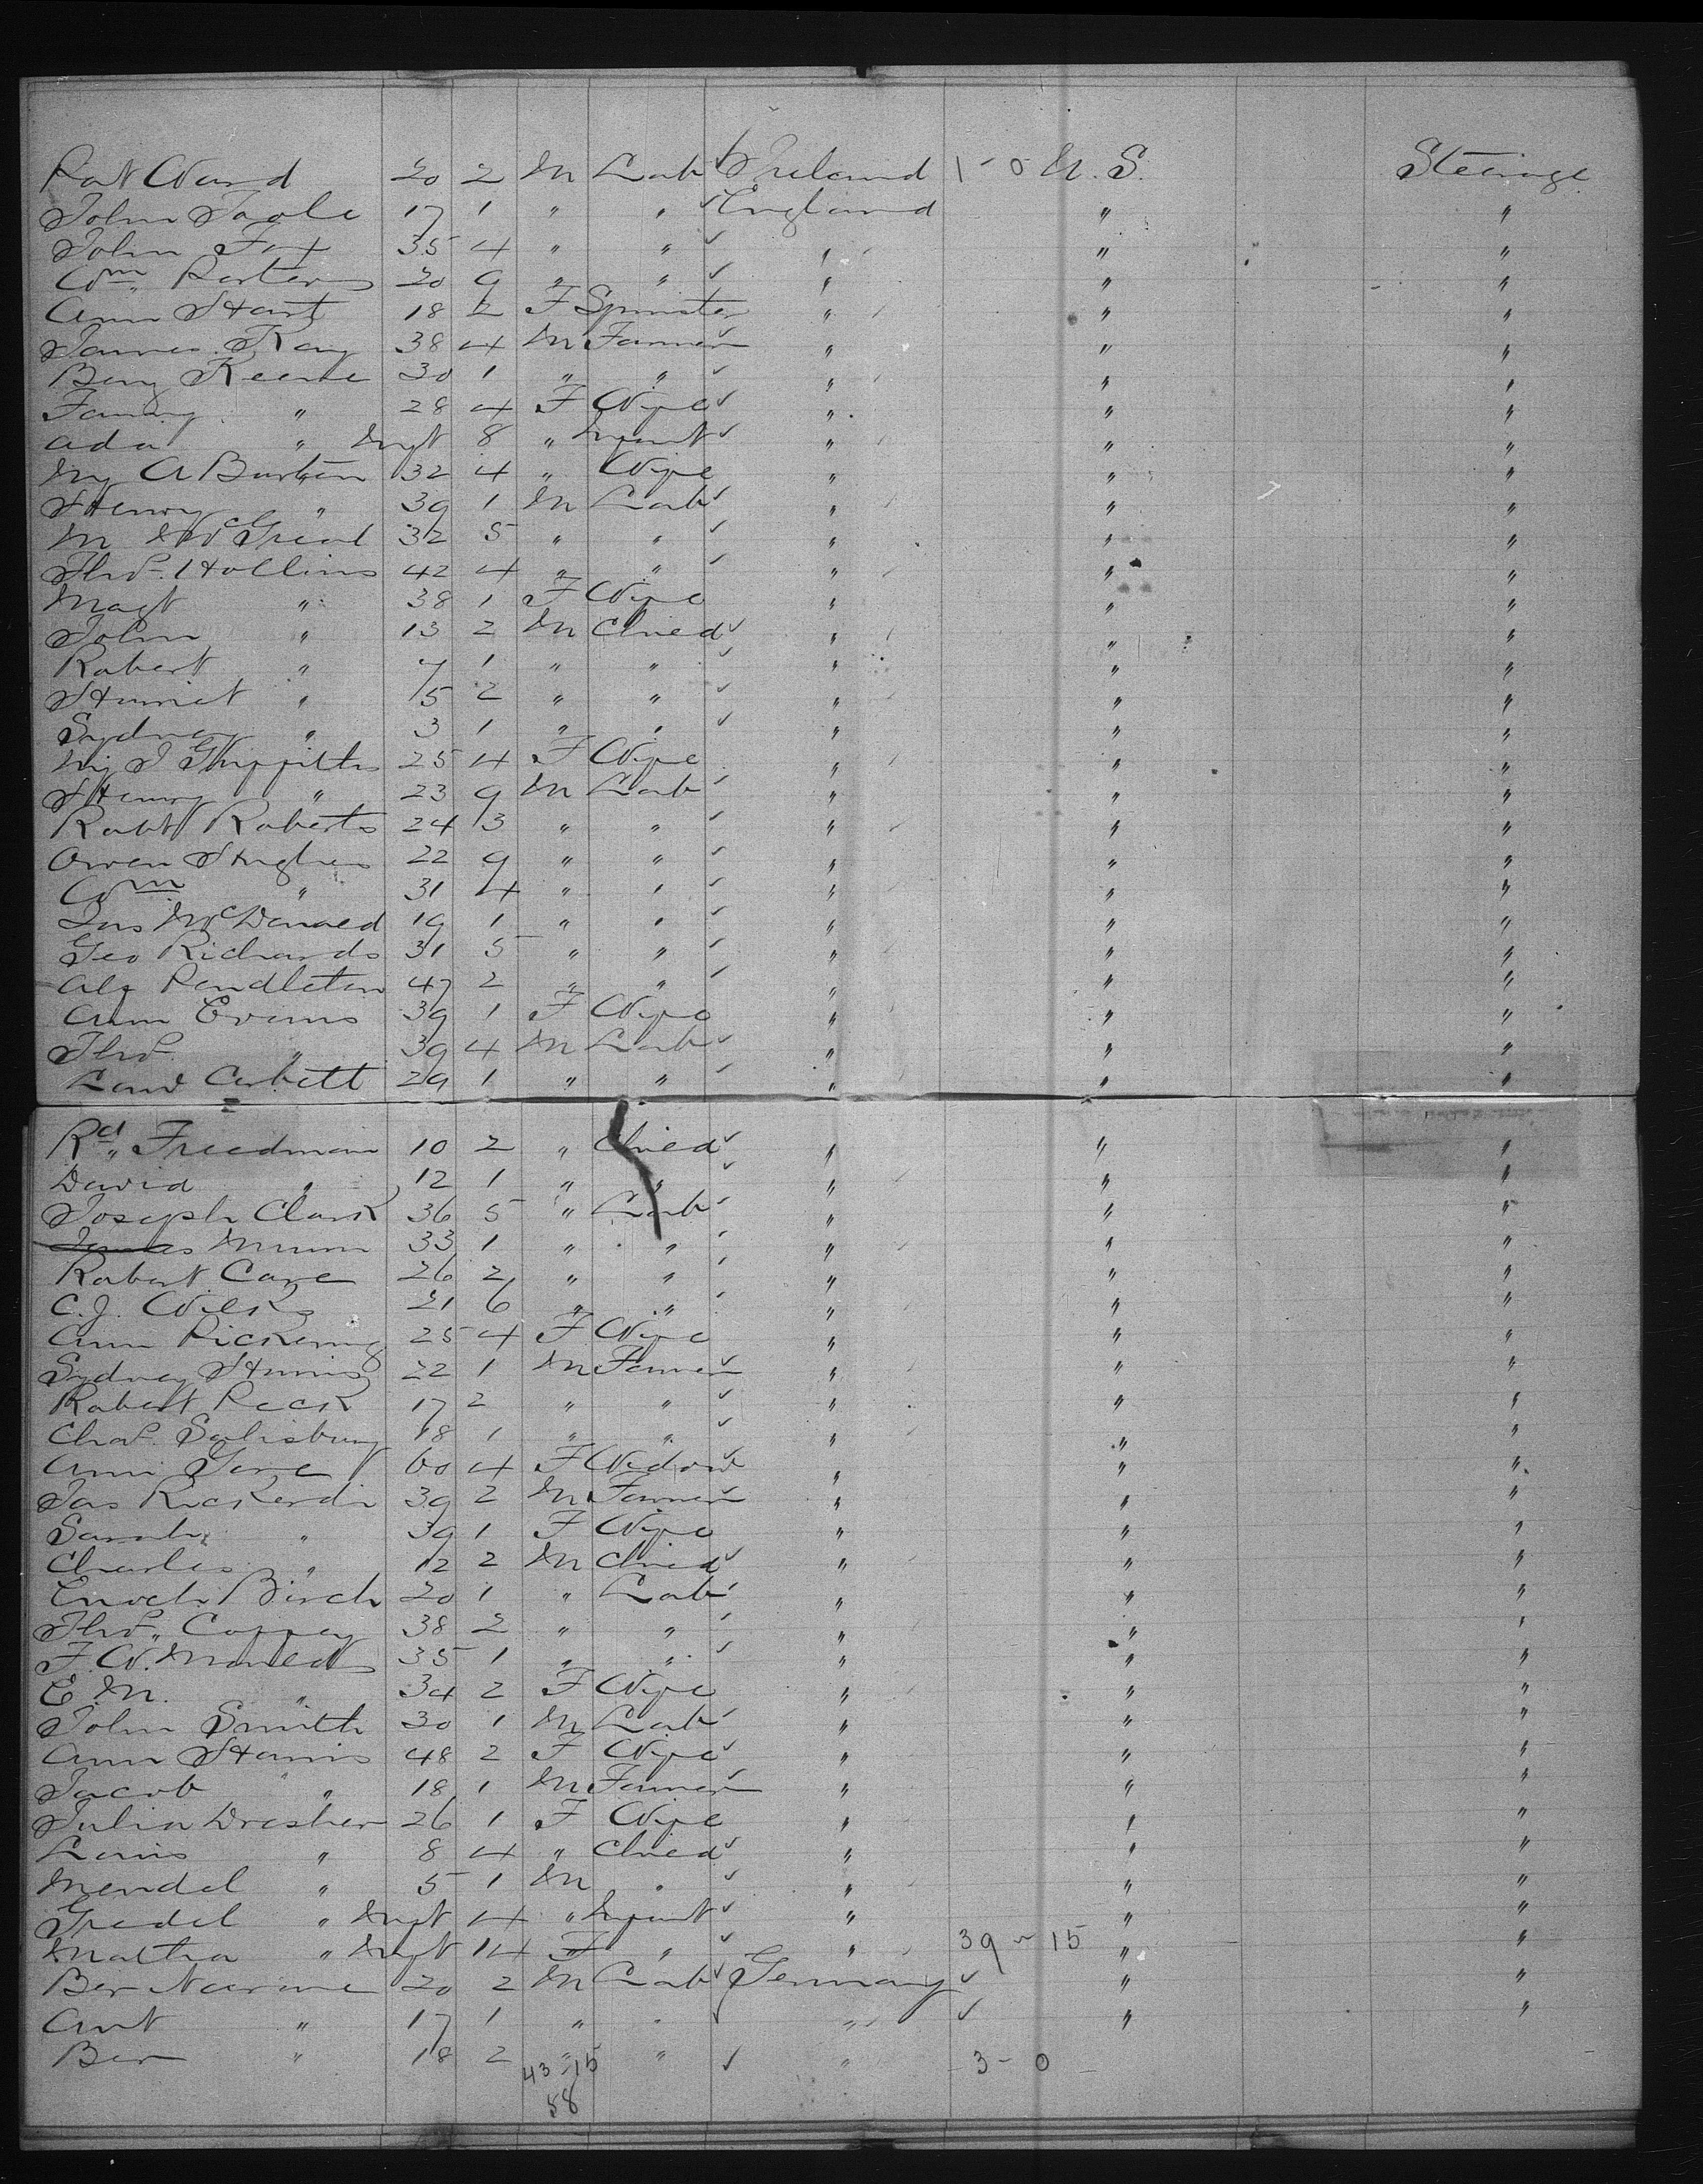 Pat Ward 20 2 M Lab Ireland 1 - 0 U. S. Steerage
John Toole 17 1 " " England " "
John Fox 35 4 " " " " "
Wm Porters 20 9 " " " " "
Ann Hart 18 2 F Spinster " " "
James Kay 38 4 M Farmer " " "
Benj Keene 30 1 " " " " "
Fanny " 28 4 F Wife " " "
Ada " Inft 8 " Infant " " "
My A Burton 32 4 " Wife " " "
Henry " 39 1 M Lab " " "
M McGreal 32 5 " " " " "
Thos. Hollins 42 4 " " " " "
Magt " 38 1 F Wife " " "
John " 13 2 M Child " " "
Robert " 7 1 " " " " "
Harriet " 5 2 " " " " "
Sydney " 3 1 " " " " "
My J Griffiths 25 4 F Wife " " "
Henry " 23 9 M Lab " " "
Robt Roberts 24 3 " " " " "
Owen Hughes 22 9 " " " " "
Wm " 31 4 " " " " "
Jas McDonald 19 1 " " " " "
Geo Richards 31 5 " " " " "
Alf Pendleton 47 2 " " " " "
Ann Evans 39 1 F Wife " " "
Thos " 39 4 M Lab " " "
Lawr Corbett 29 1 " " " " "
Rd. Freedman 10 2 " Child " " "
David " 12 1 " " " " "
Joseph Clark 36 5 " Lab " " "
James Munn 33 1 " " " " "
Robert Care 26 2 " " " " "
C.J. Wilks 21 6 " " " " "
Ann Pickering 25 4 F Wife " " "
Sydney Harris 22 1 M Farmer " " "
Robert Peck 17 2 " " " " "
Chas. Salisbury 18 1 " " " " "
Ann 60 4 F Widow " " "
Jas 39 2 M Farmer " " "
Sarah " 39 1 F Wife " " "
Charles " 12 2 M Child " " "
Enoch Birch 20 1 " Lab " " "
Thos. 38 2 " " " " "
F. W. 35 1 " " " " "
E. M. " 34 2 F Wife " " "
John Smith 30 1 M Lab " " "
Ann Harris 48 2 F Wife " " "
Jacob " 18 1 M Farmer " " "
Julia Dresher 26 1 F Wife " " "
Louis " 8 4 " Child " " "
Mendel " 5 1 M " " " "
Gredel " Inft 14 " Infant " " "
Martha " Inft 14 F " " 39 - 15 " "
Ber 20 2 M Lab Germany " "
Ant " 17 1 " " " " "
Ber " 18 2 " " " 3 - 0
43 - 15
58